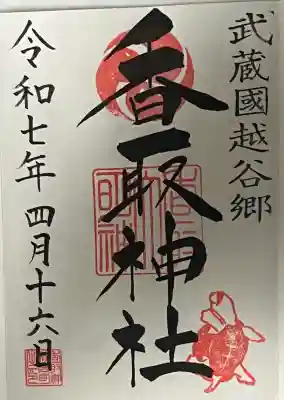 武蔵國越谷郷
香取神社
令和七年四月十六日